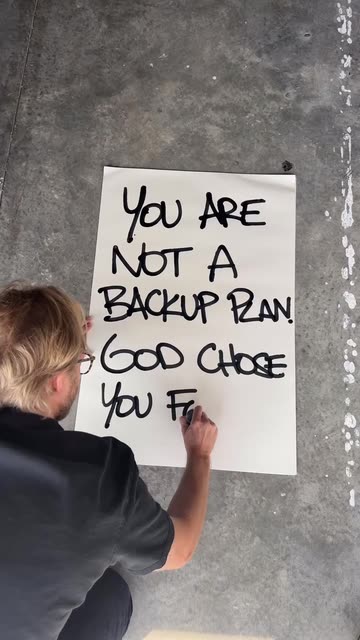 YOU ARE
NOT A
BACKUP PLAN.
GOD CHOSE
YOU F